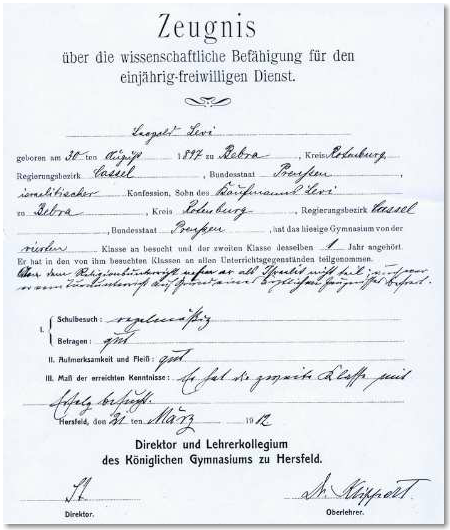 Zeugnis
über die wissenschaftliche Befähigung für den
einjährig-freiwilligen Dienst.
Leopold Levi
geboren am 30 ten August 1897 zu Bebra, Kreis Rotenburg,
Regierungsbezirk Cassel, Bundesstaat Preußen,
israelitischer Konfession, Sohn des Kaufmanns Levi
zu Bebra, Kreis Rotenburg, Regierungsbezirk Cassel
, Bundesstaat Preußen, hat das hiesige Gymnasium von der
vierten Klasse an besucht und der zweiten Klasse desselben 1 Jahr angehört.
Er hat in den von ihm besuchten Klassen an allen Unterrichtsgegenständen teilgenommen.
An dem Religionsunterricht nahm er als Israelit nicht teil; auch war
er vom Turnunterricht auf Grund eines ärztlichen Zeugnisses befreit.
I. Schulbesuch: regelmäßig
Betragen: gut
II. Aufmerksamkeit und Fleiß: gut
III. Maß der erreichten Kenntnisse: Er hat die zweite Klasse mit
Erfolg besucht.
Hersfeld, den 21 ten März 1912
Direktor und Lehrerkollegium
des Königlichen Gymnasiums zu Hersfeld.
Dr.
Direktor. Oberlehrer.